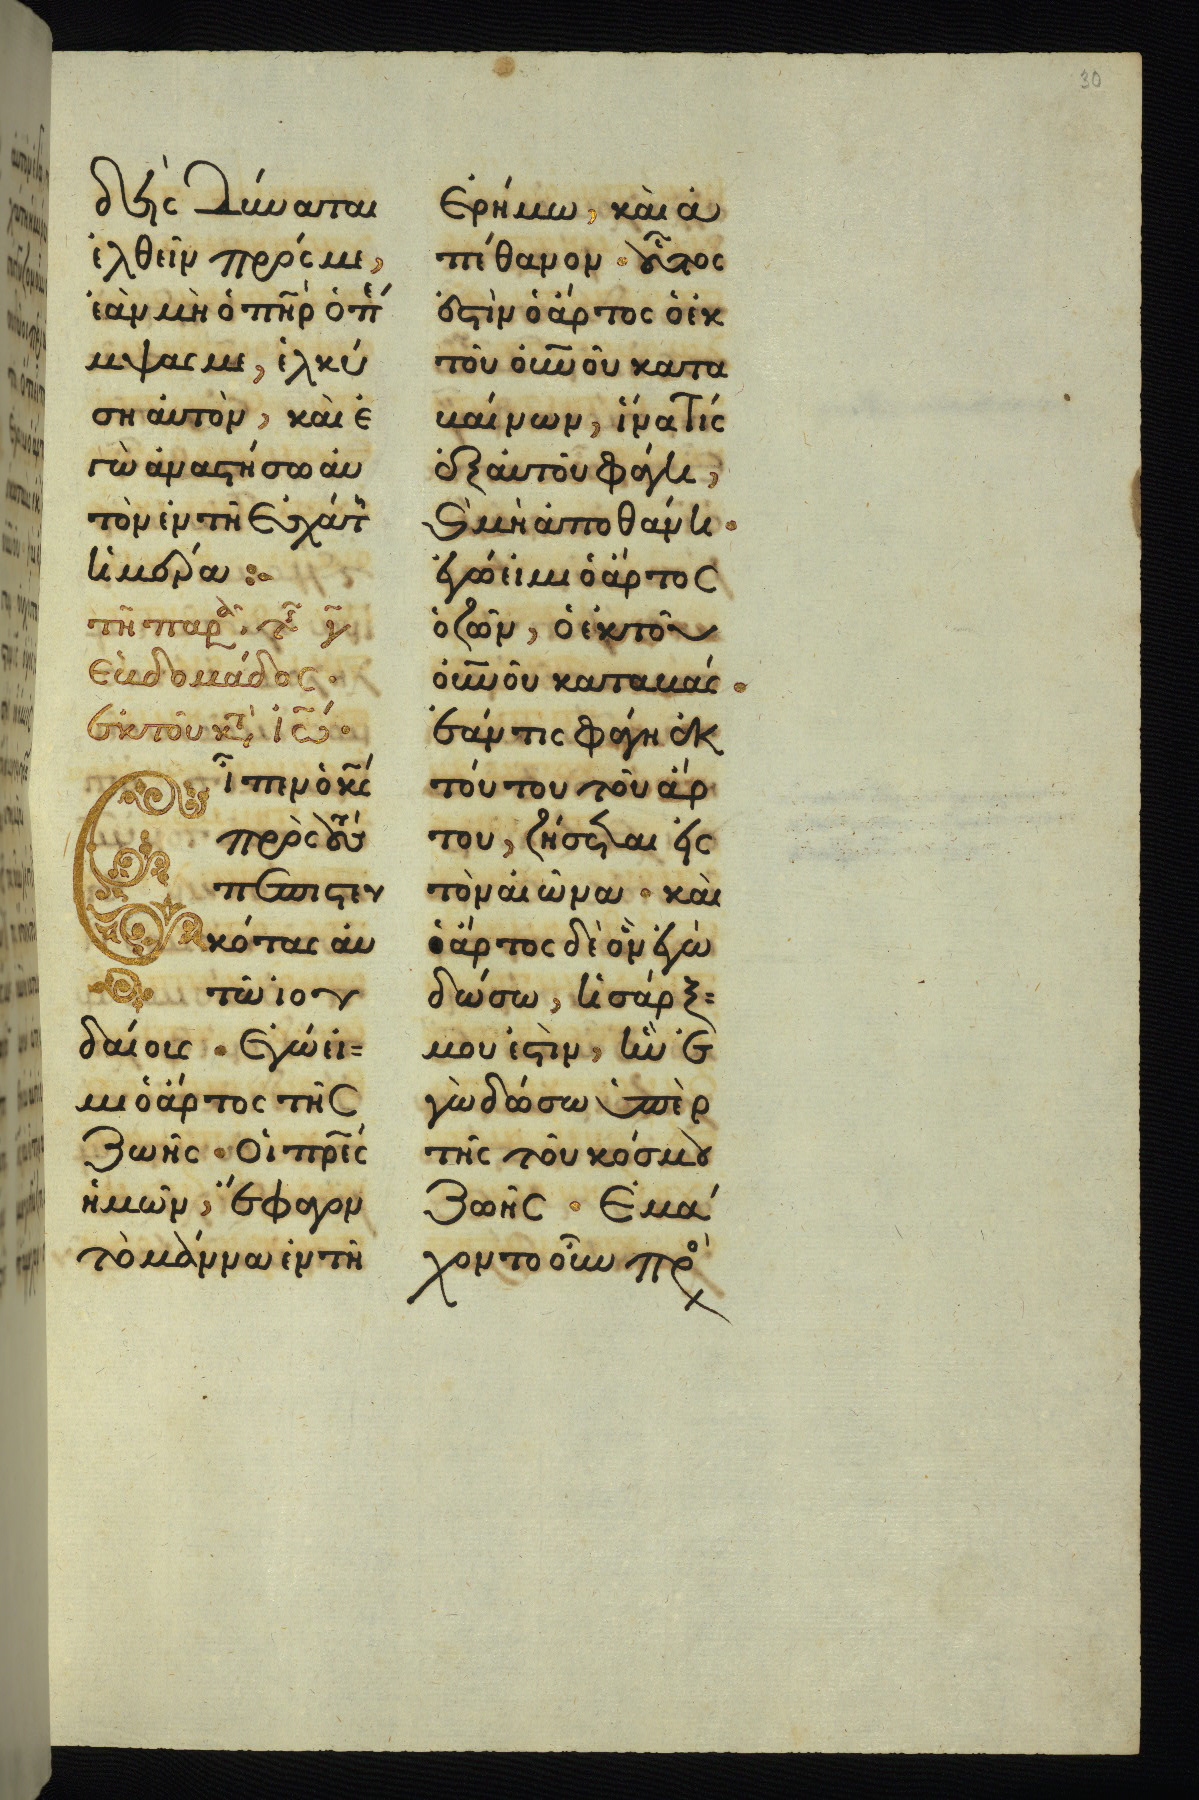 30
δεὶς δύναται
ἐλθεῖν πρός με,
ἐὰν μὴ ὁ πη̅ρ ὁ πέ
μψας με, ἑλκύ
ση αὐτὸν, καὶ ἐ
γὼ ἀναστήσω αὐ
τὸν ἐν τῆ ἐσχάτη
ἡμέρα :·
τῆ παρα, τῆς γ
ἑβδομάδος ·
ἐκ τοῦ κτ, ἰω ·
Εἶπεν ὁ κς̅
πρὸς τοὺς
πεπιστευ
κότας αὐ
τῶ ἰου
δαίους · Ἐγώ εἰ=
μι ὁ ἄρτος τῆς
ζωῆς · Οἱ πρ̅ες
ἡμῶν, ἔφαγον
τὸ μάννα ἐν τῆ
ἐρήμω, καὶ ἀ
πέθανον · οὗτος
ἐστὶν ὁ ἄρτος ὁ ἐκ
τοῦ οὐν̅οῦ κατα
βαίνων, ἵνα τίς
ἐξ αὐτοῦ φάγη,
καὶ μὴ ἀποθάνη ·
ἐγώ εἰμι ὁ ἄρτος
ὁ ζῶν, ὁ ἐκ τοῦ
οὐν̅οῦ καταβάς ·
ἐάν τις φάγη ἐκ
τούτου τοῦ ἄρ
του, ζήσεται εἰς
τὸν αἰῶνα · καὶ
ὁ ἄρτος δὲ ὃν ἐγὼ
δώσω, ἡ σάρξ=
μου ἐστὶν, ἣν ἐ
γὼ δώσω ὑπὲρ
τῆς τοῦ κόσμου
ζωῆς · Ἐμά
χοντο οὖν πρὸ